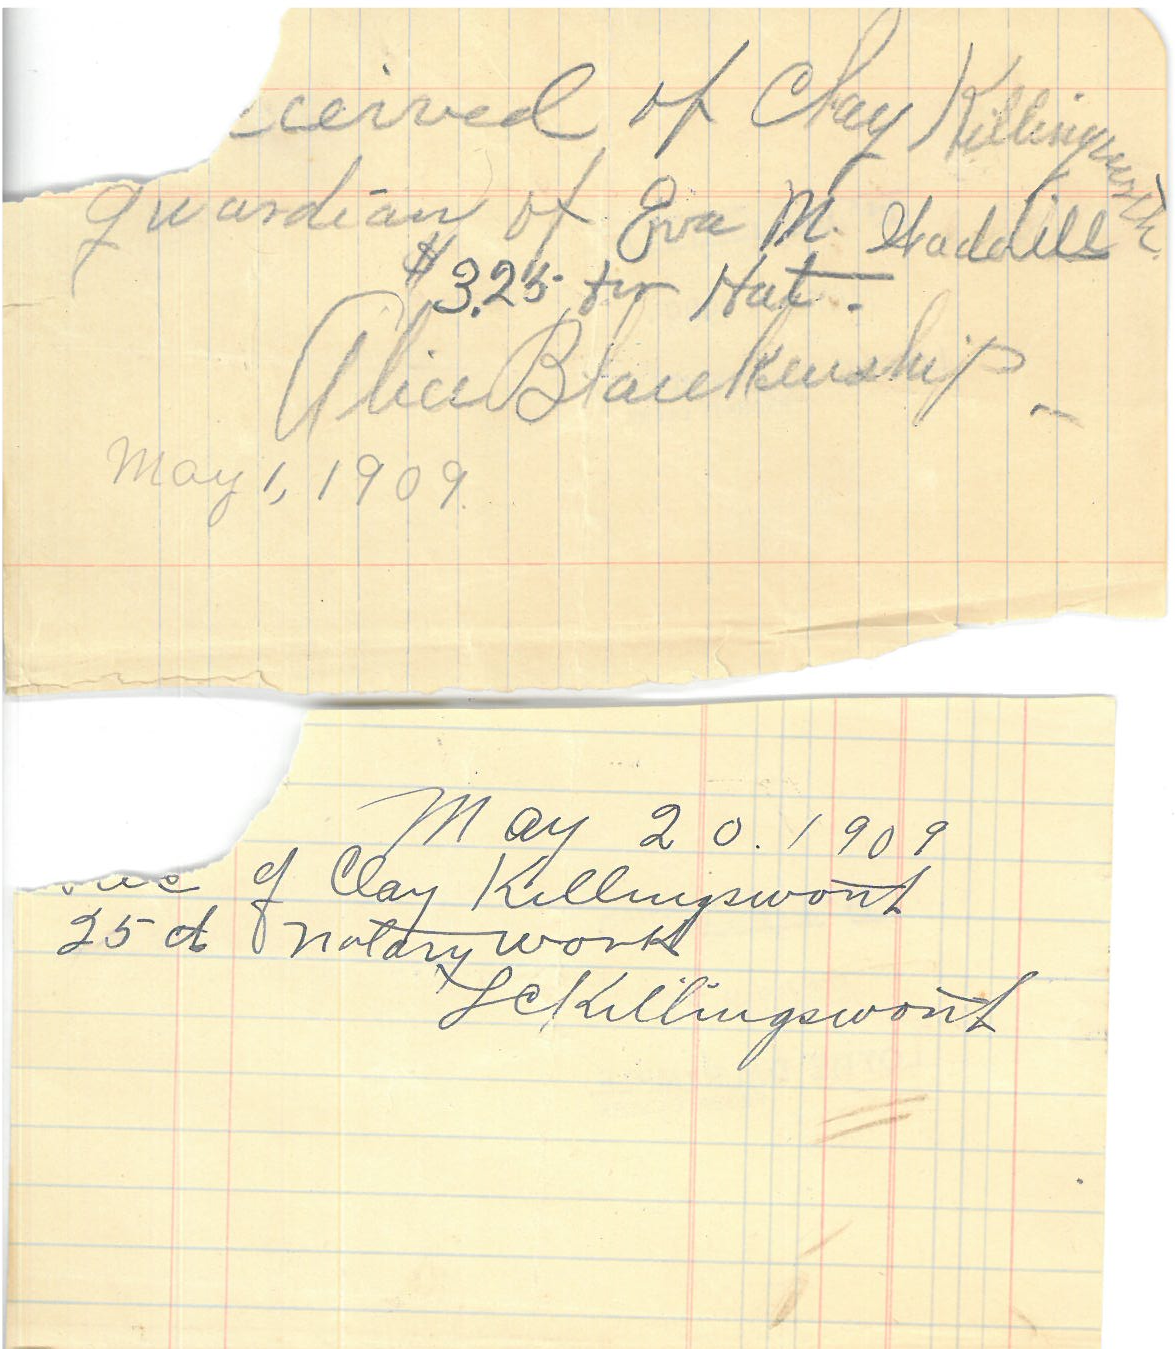 ceived of Clay Killingsworth
guardian of Eva M. Gaddill
$3.25 for Hat.
Alice Blankenship
May 1, 1909.
May 20. 1909
of Clay Killingsworth
25 ct notary work
L C Killingsworth